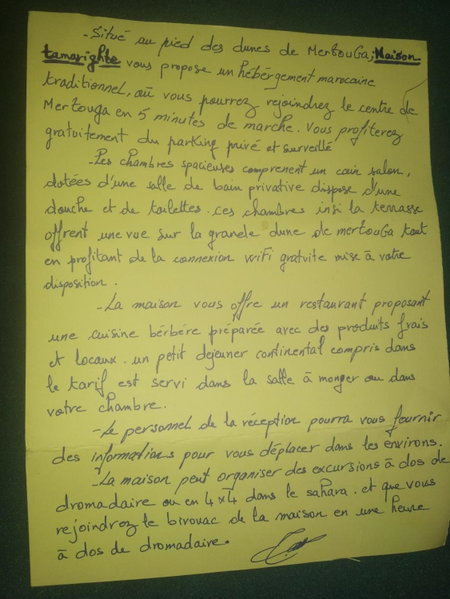 - Situé au pied des dunes de MertouGa, Maison
tamarighte vous propose un hébergement marocaine
traditionnel, où vous pourrez rejoindrez le centre de
Mertouga en 5 minutes de marche. Vous profiterez
gratuitement du parking privé et surveillé
- Les chambres spacieuses comprenent un coin salon,
dotées d'une salle de bain privative dispose d'une
douche et de toilettes. ces chambres insi la terrasse
offrent une vue sur la grande dune de mertouGa tout
en profitant de la connexion wifi gratuite mise à votre
disposition.
- La maison vous offre un restaurant proposant
une cuisine bérbère préparée avec des produits frais
et locaux. un petit dejeuner continental compris dans
le tarif est servi dans la salle à manger ou dans
votre chambre.
- Le personnel de la réception pourra vous fournir
des informations pour vous déplacer dans les environs.
- La maison peut organiser des excursions à dos de
dromadaire ou en 4x4 dans le sahara. et que vous
rejoindrez le bivouac de la maison en une heure
à dos de dromadaire.